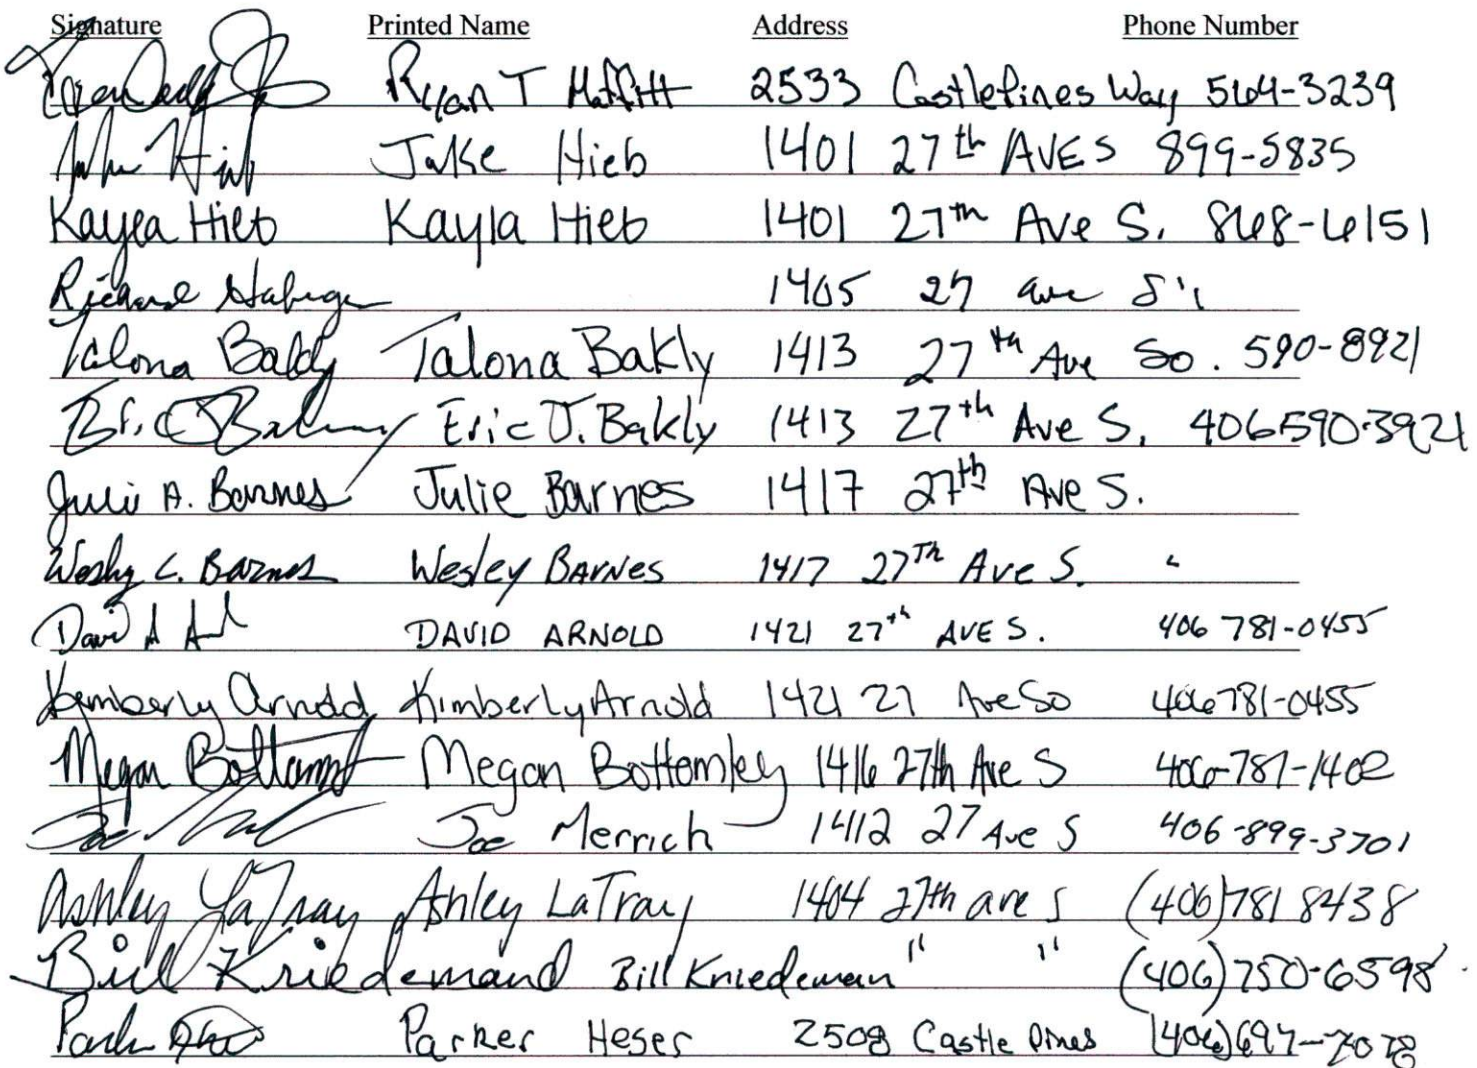 Signature Printed Name Address Phone Number
Ryan T Moffitt 2533 Castlepines Way 564-3239
Jake Hieb 1401 27th AVE S 899-5835
Kayla Hieb Kayla Hieb 1401 27th Ave S. 868-6151
Richard 1405 27 ave S.
Talona Bakly Talona Bakly 1413 27th Ave So. 590-8921
Eric J. Bakly 1413 27th Ave S. 406590-3921
Julie A. Barnes Julie Barnes 1417 27th Ave S.
Wesley C. Barnes Wesley BARNES 1417 27Th Ave S. "
David A DAVID ARNOLD 1421 27th AVE S. 406 781-0455
Kimberly Arnold Kimberly Arnold 1421 27 Ave So 406 781-0455
Megan Bottomley Megan Bottomley 1416 27th Ave S 406-781-1402
Joe Joe Merrich 1412 27 Ave S 406-899-3701
Ashley LaTray Ashley LaTray 1404 27th ave s (406)781 8438
Bill Kriedemand Bill Kriedeman " " (406)750-6598
Parker Heser 2508 Castle Pines (406)697-7078